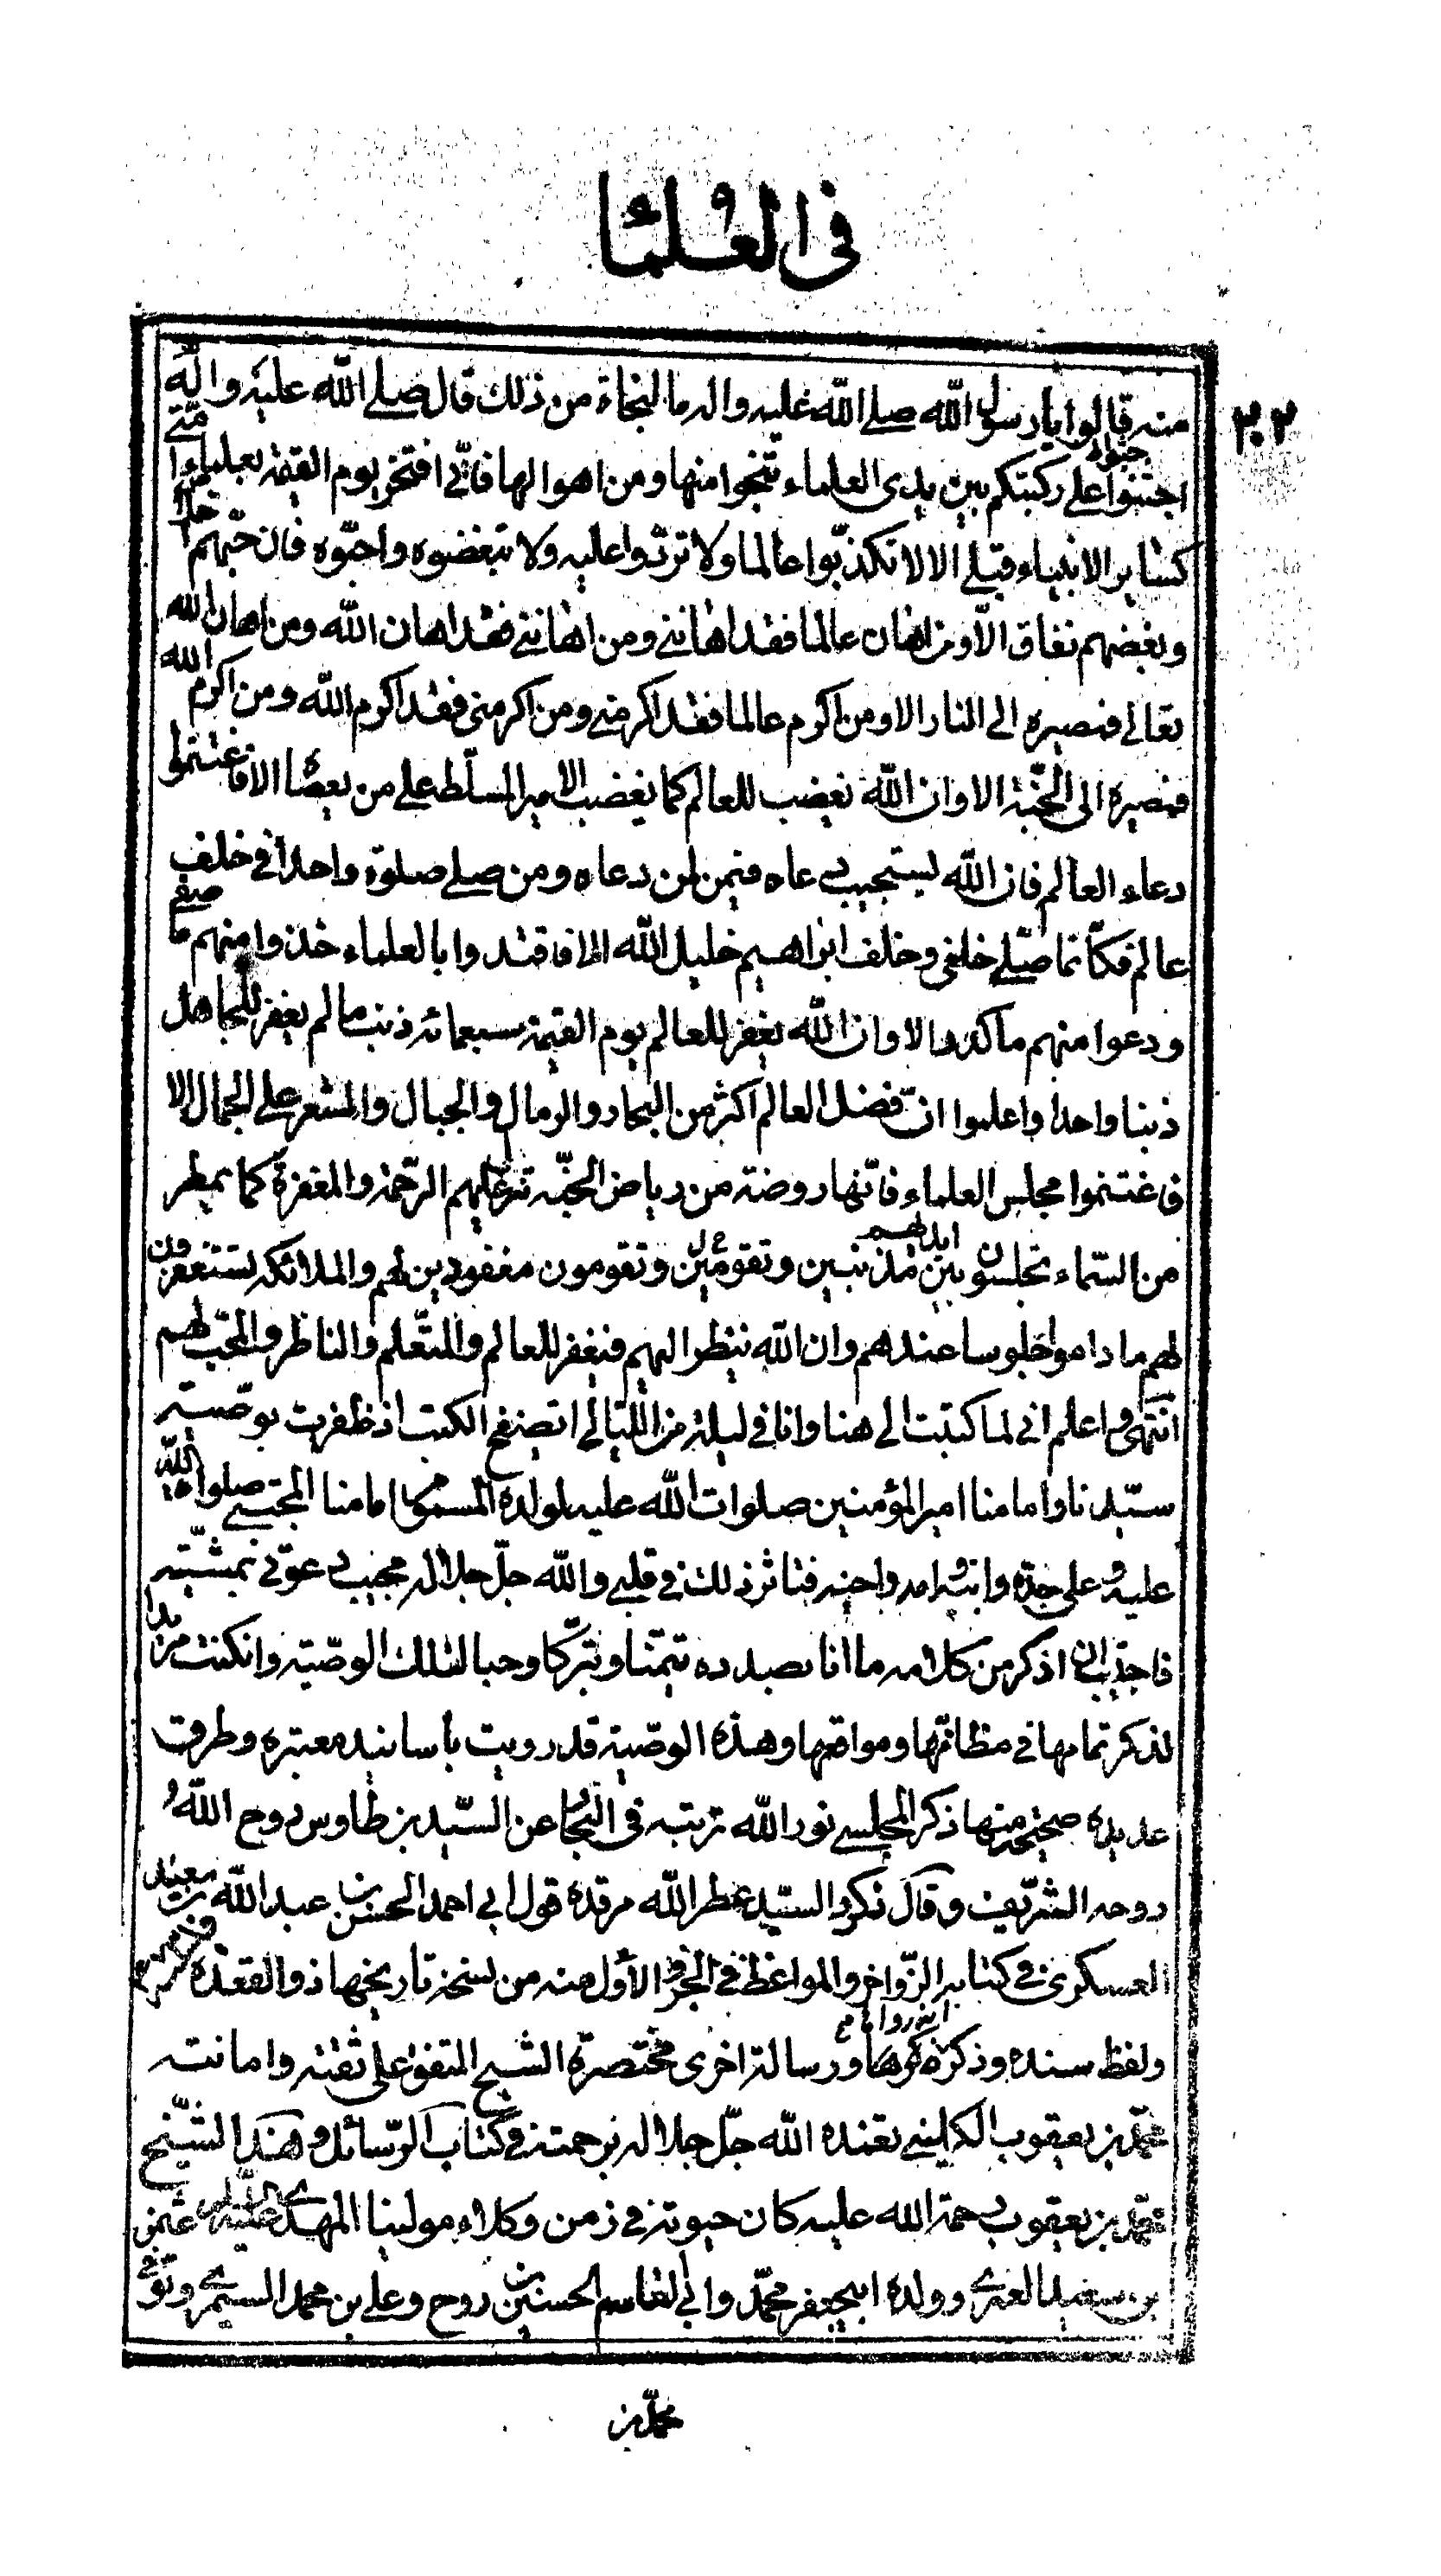 فی العلماء
٢٠٢
منه قالوا يا رسول الله صلے الله عليه واله ما النجاة من ذلك قال صلے الله عليه واله
اجثوا علے ركبتكم بين يدى العلماء تنجوا منها ومن اهوالها فانّے افتخر يوم القيمة بعلماء امّتے
كساير الانبياء قبلے الا لا تكذّبوا عالما ولا تردّوا عليه ولا تبغضوه واحبّوه فان حبّهم اخلاص
وبغضهم نفاق الا ومن اهان عالما فقد اهاننے ومن اهاننے فقد اهان الله ومن اهان الله
تعالے فمصيره الى النار الا ومن اكرم عالما فقد اكرمنے ومن اكرمنى فقد اكرم الله ومن اكرم الله
فمصيره الى الجنّة الا وان الله يغضب للعالم كما يغضب الامير المسلّط علے من يعصاه الا فاغتنموا
دعاء العالم فان الله يستجيب دعاه فيمن دعاه ومن صلے صلوة واحدا فے خلف
عالم فكأنما صلّے خلفى وخلف ابراهيم خليل الله الا فاقتدوا بالعلماء خذوا منهم ما صفے
ودعوا منهم ما كدر الا وان الله يغفر للعالم يوم القيمة سبعمائه ذنب ما لم يغفر للجاهل
ذنبا واحدا واعلموا انّ فضل العالم اكثر من البحار والرمال والجبال والشعر علے الجمال الا
فاغتنموا مجلس العلماء فانّها روضة من رياض الجنّه تنزل عليهم الرّحمة والمغفرة كما يمطر
من السّماء تجلسون بين ايديهم مذنبين وتقومون مغفورين لهم والملائكه يستغفرون
لهم ما داموا جلوسا عندهم وان الله ينظر اليهم فيغفر للعالم والمتعلّم والناظر والمحبّ لهم
انتهى واعلم انے لما كتبت الے هنا وانا فے ليلة من اللّيالے اتصفح الكتب اذ ظفرت بوصيّة
سيّدنا وامامنا امير المؤمنين صلوات الله عليه لولده المسموم امامنا المجتبے صلوات الله
عليه وعلى جدّه وابيه وامه واخيه فتاثر ذلك فے قلبے والله جلّ جلاله مجيب دعوتے بمشيّته
فاجذبنے ان اذكر من كلامه ما انا بصدده تيمّنا وتبرّكا وحبا لتلك الوصيّة وان كنت مريدا
لذكر تمامها فے مظانّها ومواقعها وهذه الوصيّة قد رويت بأسانيد معتبره وطرق
عديده صحيحة منها ذكر المجلسے نور الله تربته فى البحار عن السّيد بن طاوس روح الله
روحه الشّريف وقال ذكره السّيد عطر الله مرقده قول ابے احمد الحسن بن عبد الله بن سعيد
العسكرى فے كتابه الزّواجر والمواعظ فے الجزء الأول منه من نسخة تاريخها ذو القعدة
ولفظ سنده وذكره ورسالة اخرى مختصرة الشيخ المتفق على ثقته وامانته
محمّد بن يعقوب الكلينے تغمده الله جلّ جلاله برحمته فے كتاب الرّسائل وهذا الشّيخ
محمّد بن يعقوب رحمة الله عليه كان حيوته فے زمن وكلاء مولينا المهدے عليه السلام عثمن
بن سعيد العمرے وولده ابيجعفر محمّد وابے القاسم الحسين بن روح وعلے بن محمد السيمرے وتوفّے
محمّد بن